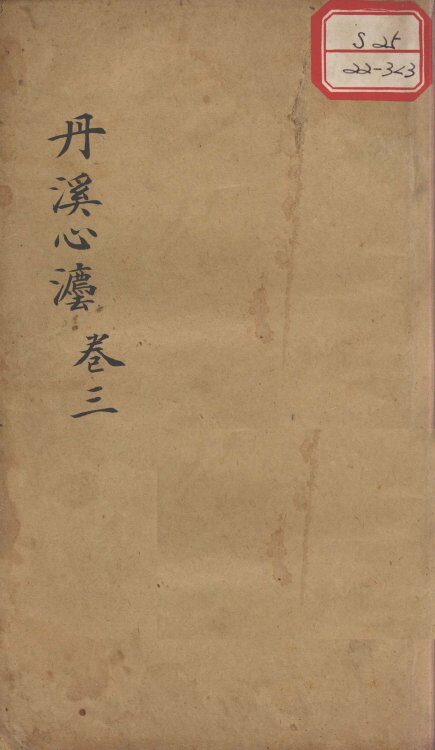 丹溪心灋
卷三
S 25
22-363